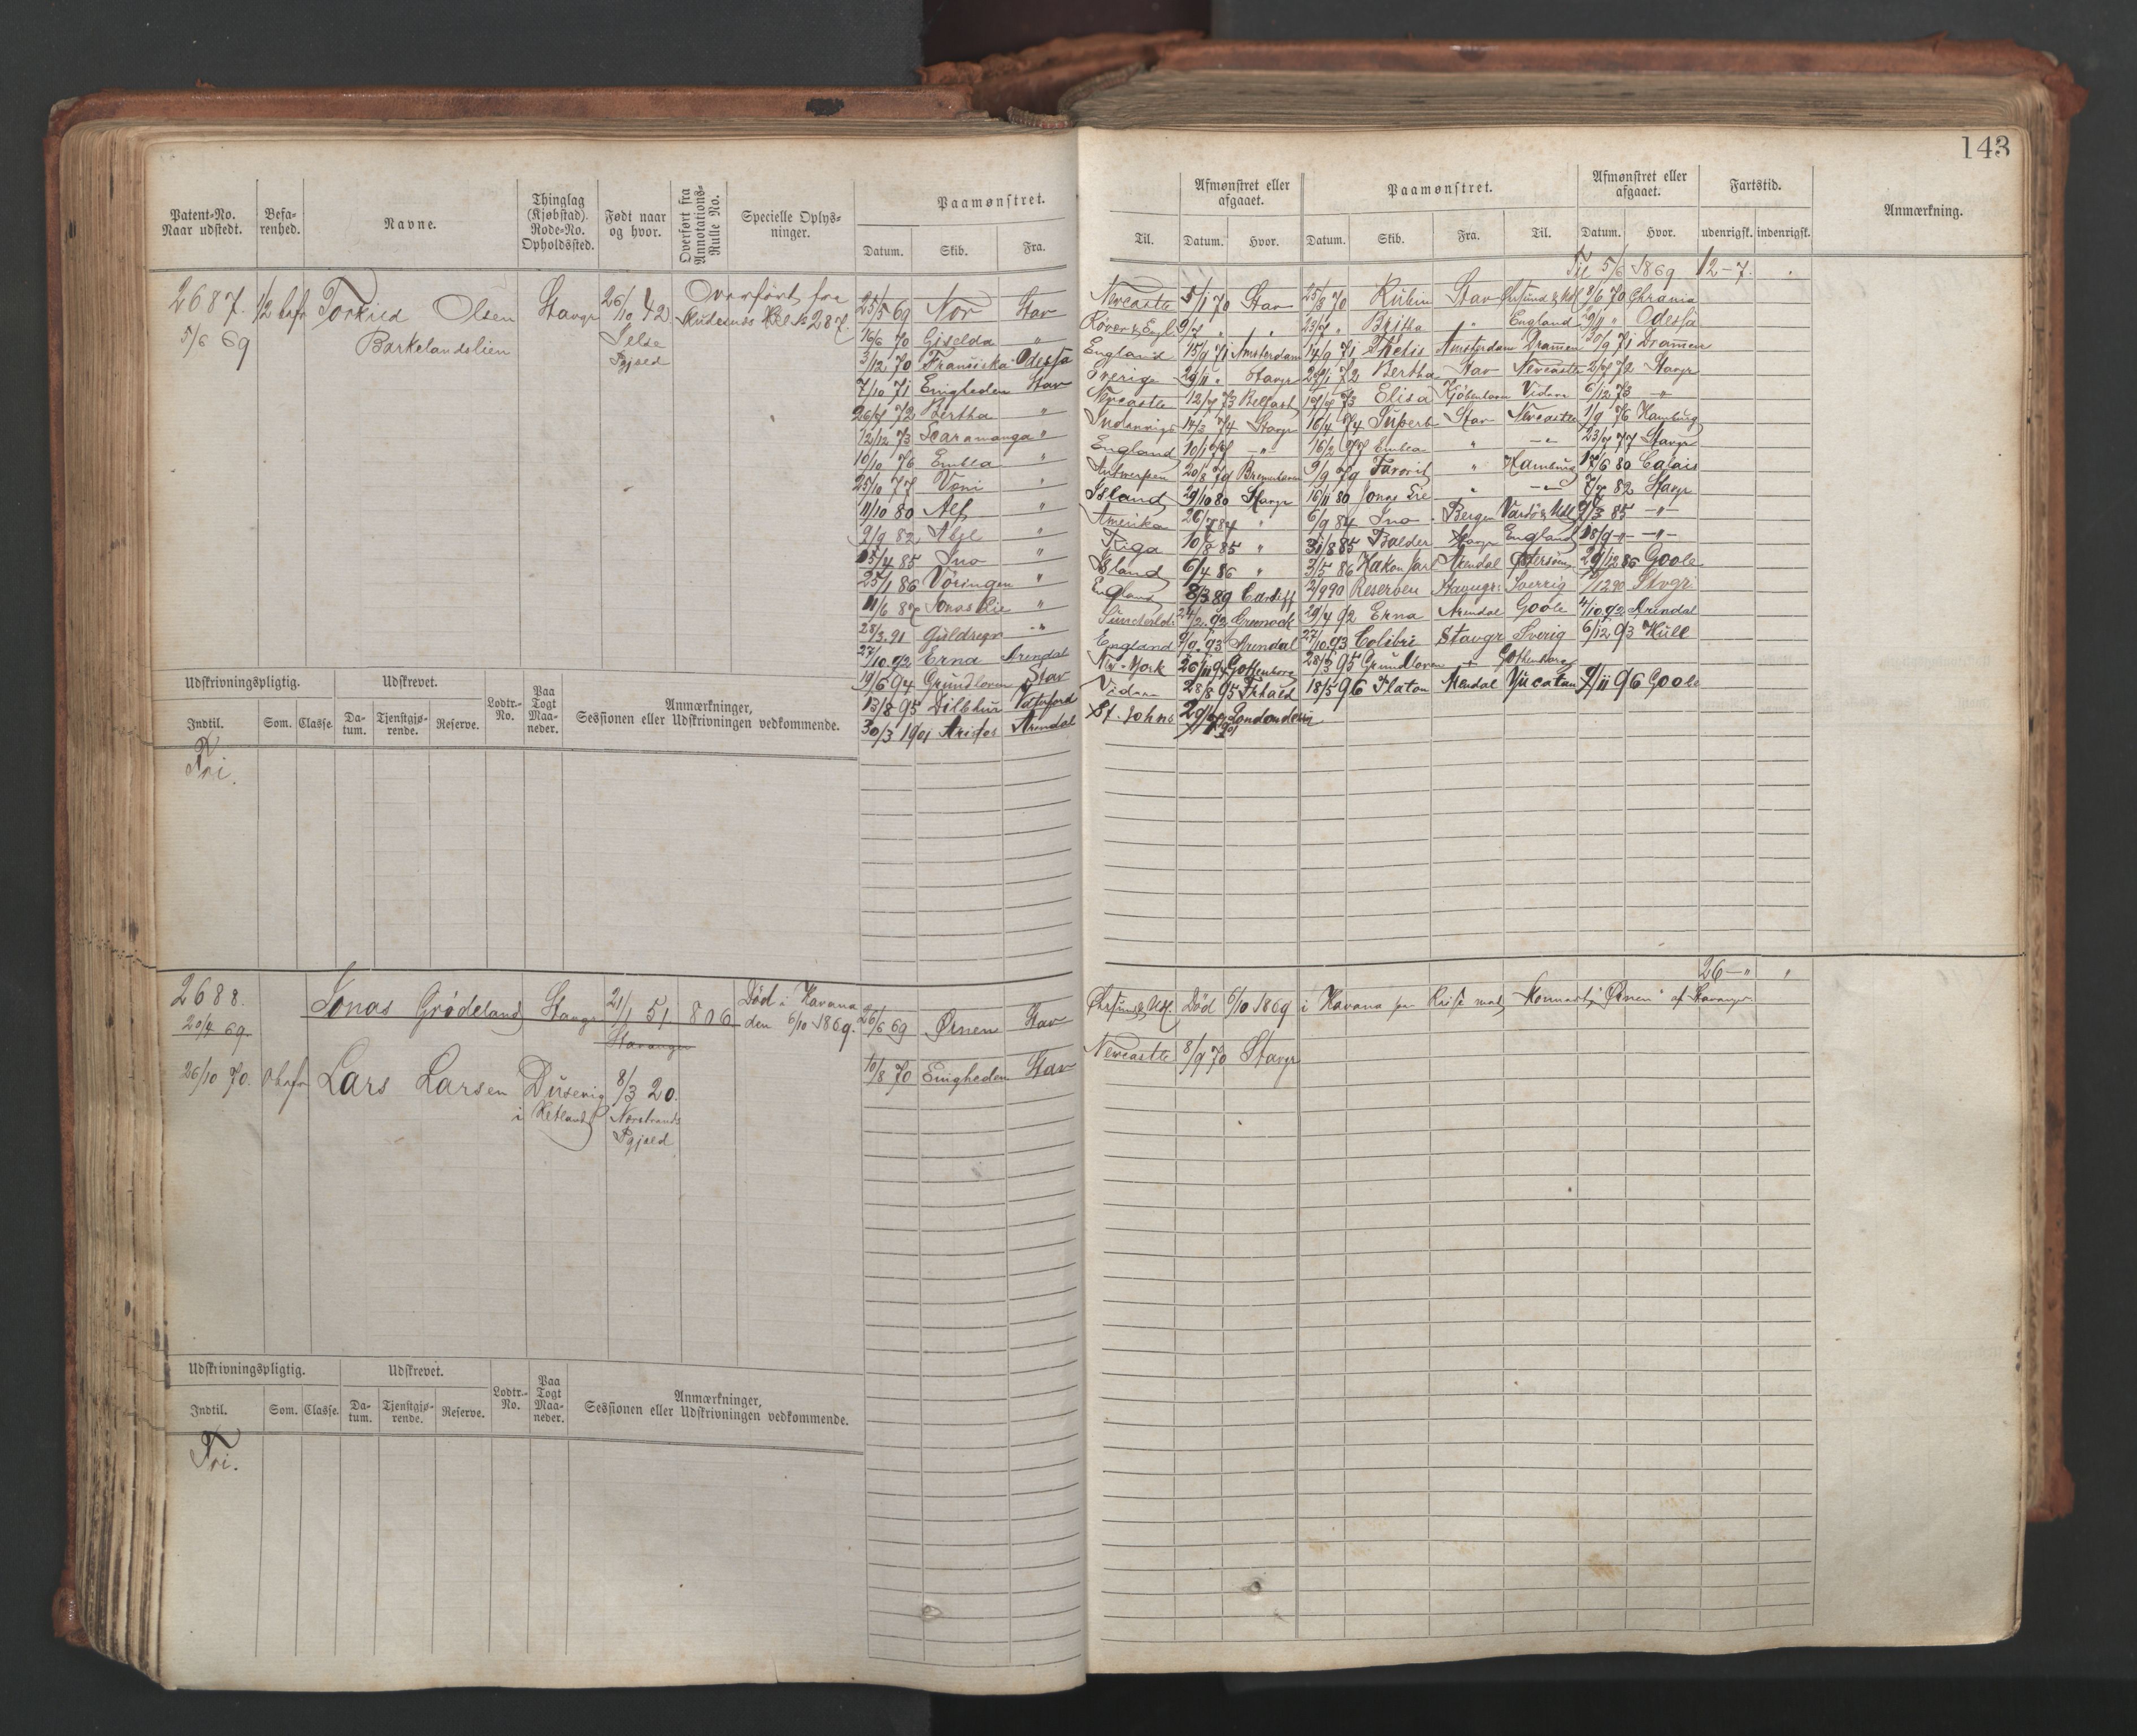 143
Patent-No. Naar udstedt.
Befarenhed.
Navne.
Thinglag (Kjøbstad). Rode-No. Opholdssted.
Født naar og hvor.
Overført fra Annotations-Rulle No.
Specielle Oplysninger.
Paamønstret.
Datum. Skib. Fra. Til.
Afmønstret eller afgaaet.
Datum. Hvor.
Paamønstret.
Datum. Skib. Fra. Til.
Afmønstret eller afgaaet.
Datum. Hvor.
Fartstid.
udenrigsk. indenrigsk.
Anmærkning.
Til 5/6 1869 12-7.
2687. 1/2 bef Torkild Olsen Stavgr 26/10 42 Overført fra
5/6 69 Barkelandslien Jelse Pgjæld Skudesnæs No 287.
25/5 69 Nor Stav Newcastle 5/1 70 Stav 25/3 70 Rubin Stav 8/6 70 Chrania
16/6 70 Giselda " 9/7 " " 23/7 " Britha " England " Odessa
3/12 70 Franciska Odessa England 15/9 71 Amsterdam 14/9 71 Thetis Amsterdam Drammen 30/9 71 Drammen
7/10 71 Enigheden Stav Sverige 29/11 " Stavgr 72 Bertha Stav Newcastle 2/7 72 Stavgr
26/7 72 Bertha " Newcastle 12/7 73 Belfast 19/7 73 Elisa Kjøbenhavn Vidare 6/12 73 -"-
12/12 73 Scaramanga " Indenrigs 14/3 74 Stavgr 16/4 74 Superb Stav Newcastle 1/9 76 Hamburg
10/10 76 Embla " England 10/1 77 -"- 16/2 77 Embla " -"- 23/7 77 Stavgr
25/10 77 Voni " Antwerpen 20/8 79 Bremerhaven 9/9 79 Favorit " Hamburg 17/6 80 Calais
11/10 80 Alf " Island 29/10 80 Stavgr 16/11 80 Jonas Lie " -"- 7/7 82 Stavgr
2/9 82 " Amerika 26/7 84 " 6/9 84 Ino Bergen 2/3 85 -"-
15/4 85 Ino " Riga 10/8 85 " 31/8 85 Balder Stavgr England 18/9 -"- -"-
25/1 86 Vöringen " Island 6/4 86 " 3/5 86 Hakon Jarl Arendal 29/12 86 Goole
11/6 87 Jonas Lie " England 8/3 89 Cardiff 2/9 90 Reserven Stavngr Sverrig 12 90 Stvgr
28/3 91 Guldregn -"- 92 Greenock 29/4 92 Erna Arendal Goole 4/10 92 Arendal
27/10 92 Erna Arendal England 9/9 93 Arendal 27/10 93 Colibri Stavgr Sverig 6/12 93 Hull
19/6 94 Grundloven Stav New-York 26/11 94 Gothenborg 28/3 95 Grundloven " Gothenborg
13/8 95 Dilbhur Vaterford Vidare 28/8 95 18/5 96 Platon Arendal Yucatan 9/11 96 Goole
30/3 1901 Arendal St. Johns Londonderry
Udskrivningspligtig.
Indtil. Som. Classe.
Udskrevet.
Datum. Tjenstgjørende. Reserve.
Lodtr.-No.
Paa Togt Maaneder.
Anmærkninger,
Sessionen eller Udskrivningen vedkommende.
Fri.
26-" "
2688. Jonas Grödeland Stavgr 21/1 51 806 Död i Havana
20/4 69. Stavanger den 6/10 1869.
26/6 69 Ørnen Stav Død 6/10 1869 i Havana paa Reise med "Ørnen" af Stavanger
26/10 70. Lars Larsen Dusevig 8/3 20.
i Ketland Nærstrands Pgjæld
10/8 70 Enigheden Stav Newcastle 8/9 70 Stavgr
Udskrivningspligtig.
Indtil. Som. Classe.
Udskrevet.
Datum. Tjenstgjørende. Reserve.
Lodtr.-No.
Paa Togt Maaneder.
Anmærkninger,
Sessionen eller Udskrivningen vedkommende.
Fri.